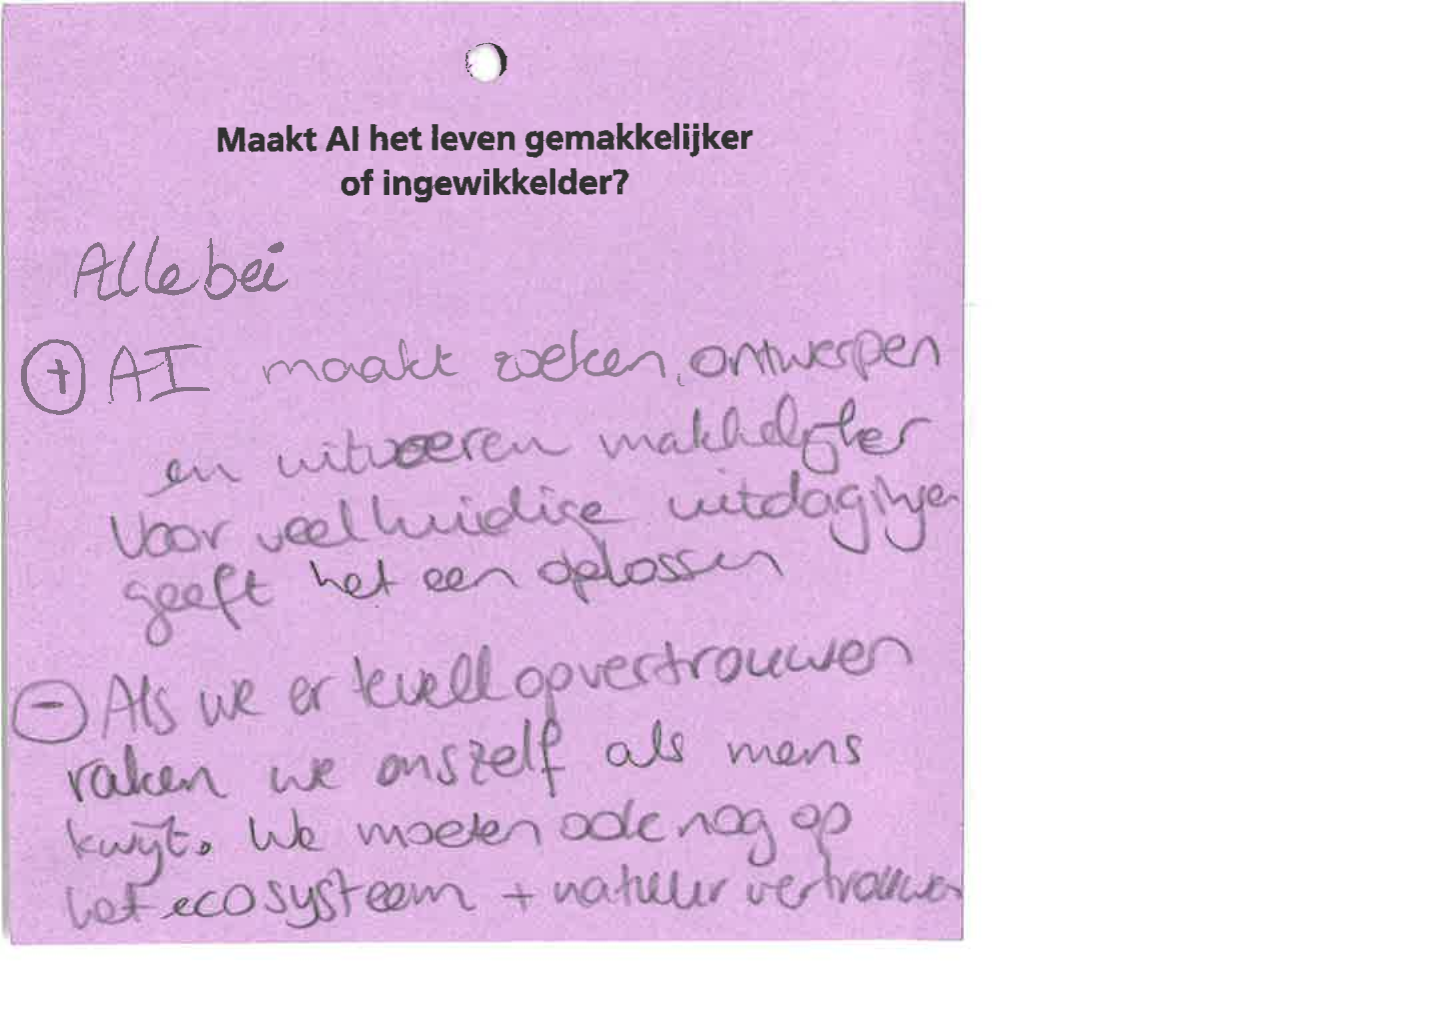 Maakt AI het leven gemakkelijker
of ingewikkelder?
Allebei
+ AI maakt zoeken, ontwerpen
en uitvoeren makkelijker
Voor veel huidige uitdagingen
geeft het een oplossen
- Als we er teveell op vertrouwen
raken we onszelf als mens
kwijt. We moeten ook nog op
het ecosysteem + natuur vertrouwen